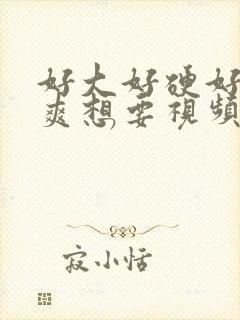 好大好硬好
爽想要視頻
寂小恬